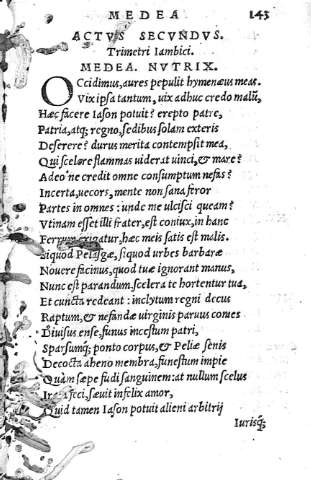 MEDEA 143
ACTVS SECVNDVS.
Trimetri Iambici.
MEDEA. NVTRIX.
OCcidimus, aures pepulit hymenæus meas.
Vix ipsa tantum, uix adhuc credo malũ,
Hæc facere Iason potuit? erepto patre,
Patria, atq; regno, sedibus solam exteris
Deserere? durus merita contempsit mea,
Qui scelere flammas uiderat uinci, & mare?
Adeo'ne credit omne consumptum nefas?
Incerta, uecors, mente non sana feror
Partes in omnes: unde me ulcisci queam?
Vtinam esset illi frater, est coniux, in hanc
Ferrum exigatur, hæc meis satis est malis.
Siquod Pelasgæ, siquod urbes barbaræ
Nouere facinus, quod tuæ ignorant manus,
Nunc est parandum. scelera te hortentur tua,
Et cuncta redeant: inclytum regni decus
Raptum, & nefandæ uirginis paruus comes
Diuisus ense, funus incestum patri,
Sparsumq; ponto corpus, & Peliæ senis
Decocta aheno membra, funestum impie
Quàm sæpe fudi sanguinem: at nullum scelus
Irata feci, sæuit infelix amor,
Quid tamen Iason potuit alieni arbitrij
Iurisq;